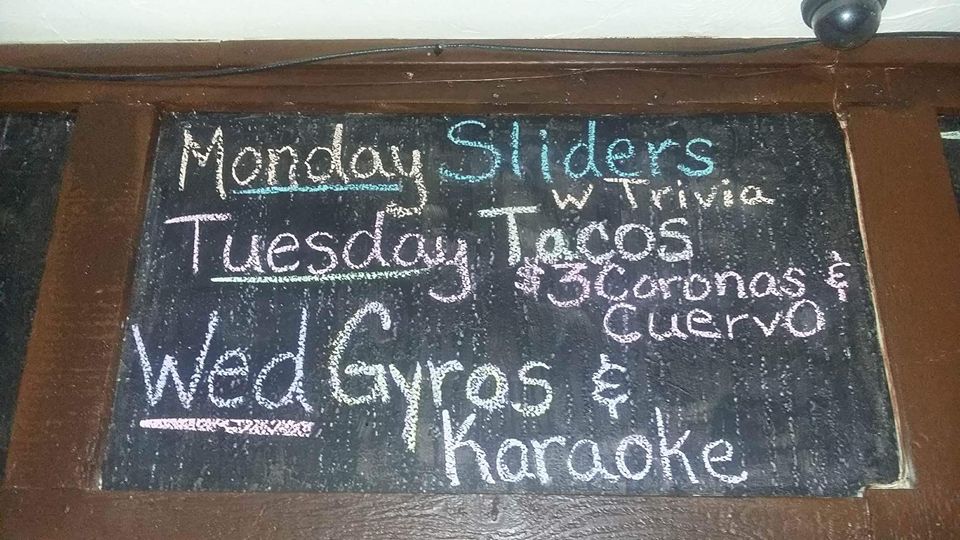 Monday Sliders
W Trivia
Tuesday Tacos
$3 Coronas &
Cuervo
Wed Gyros &
Karaoke